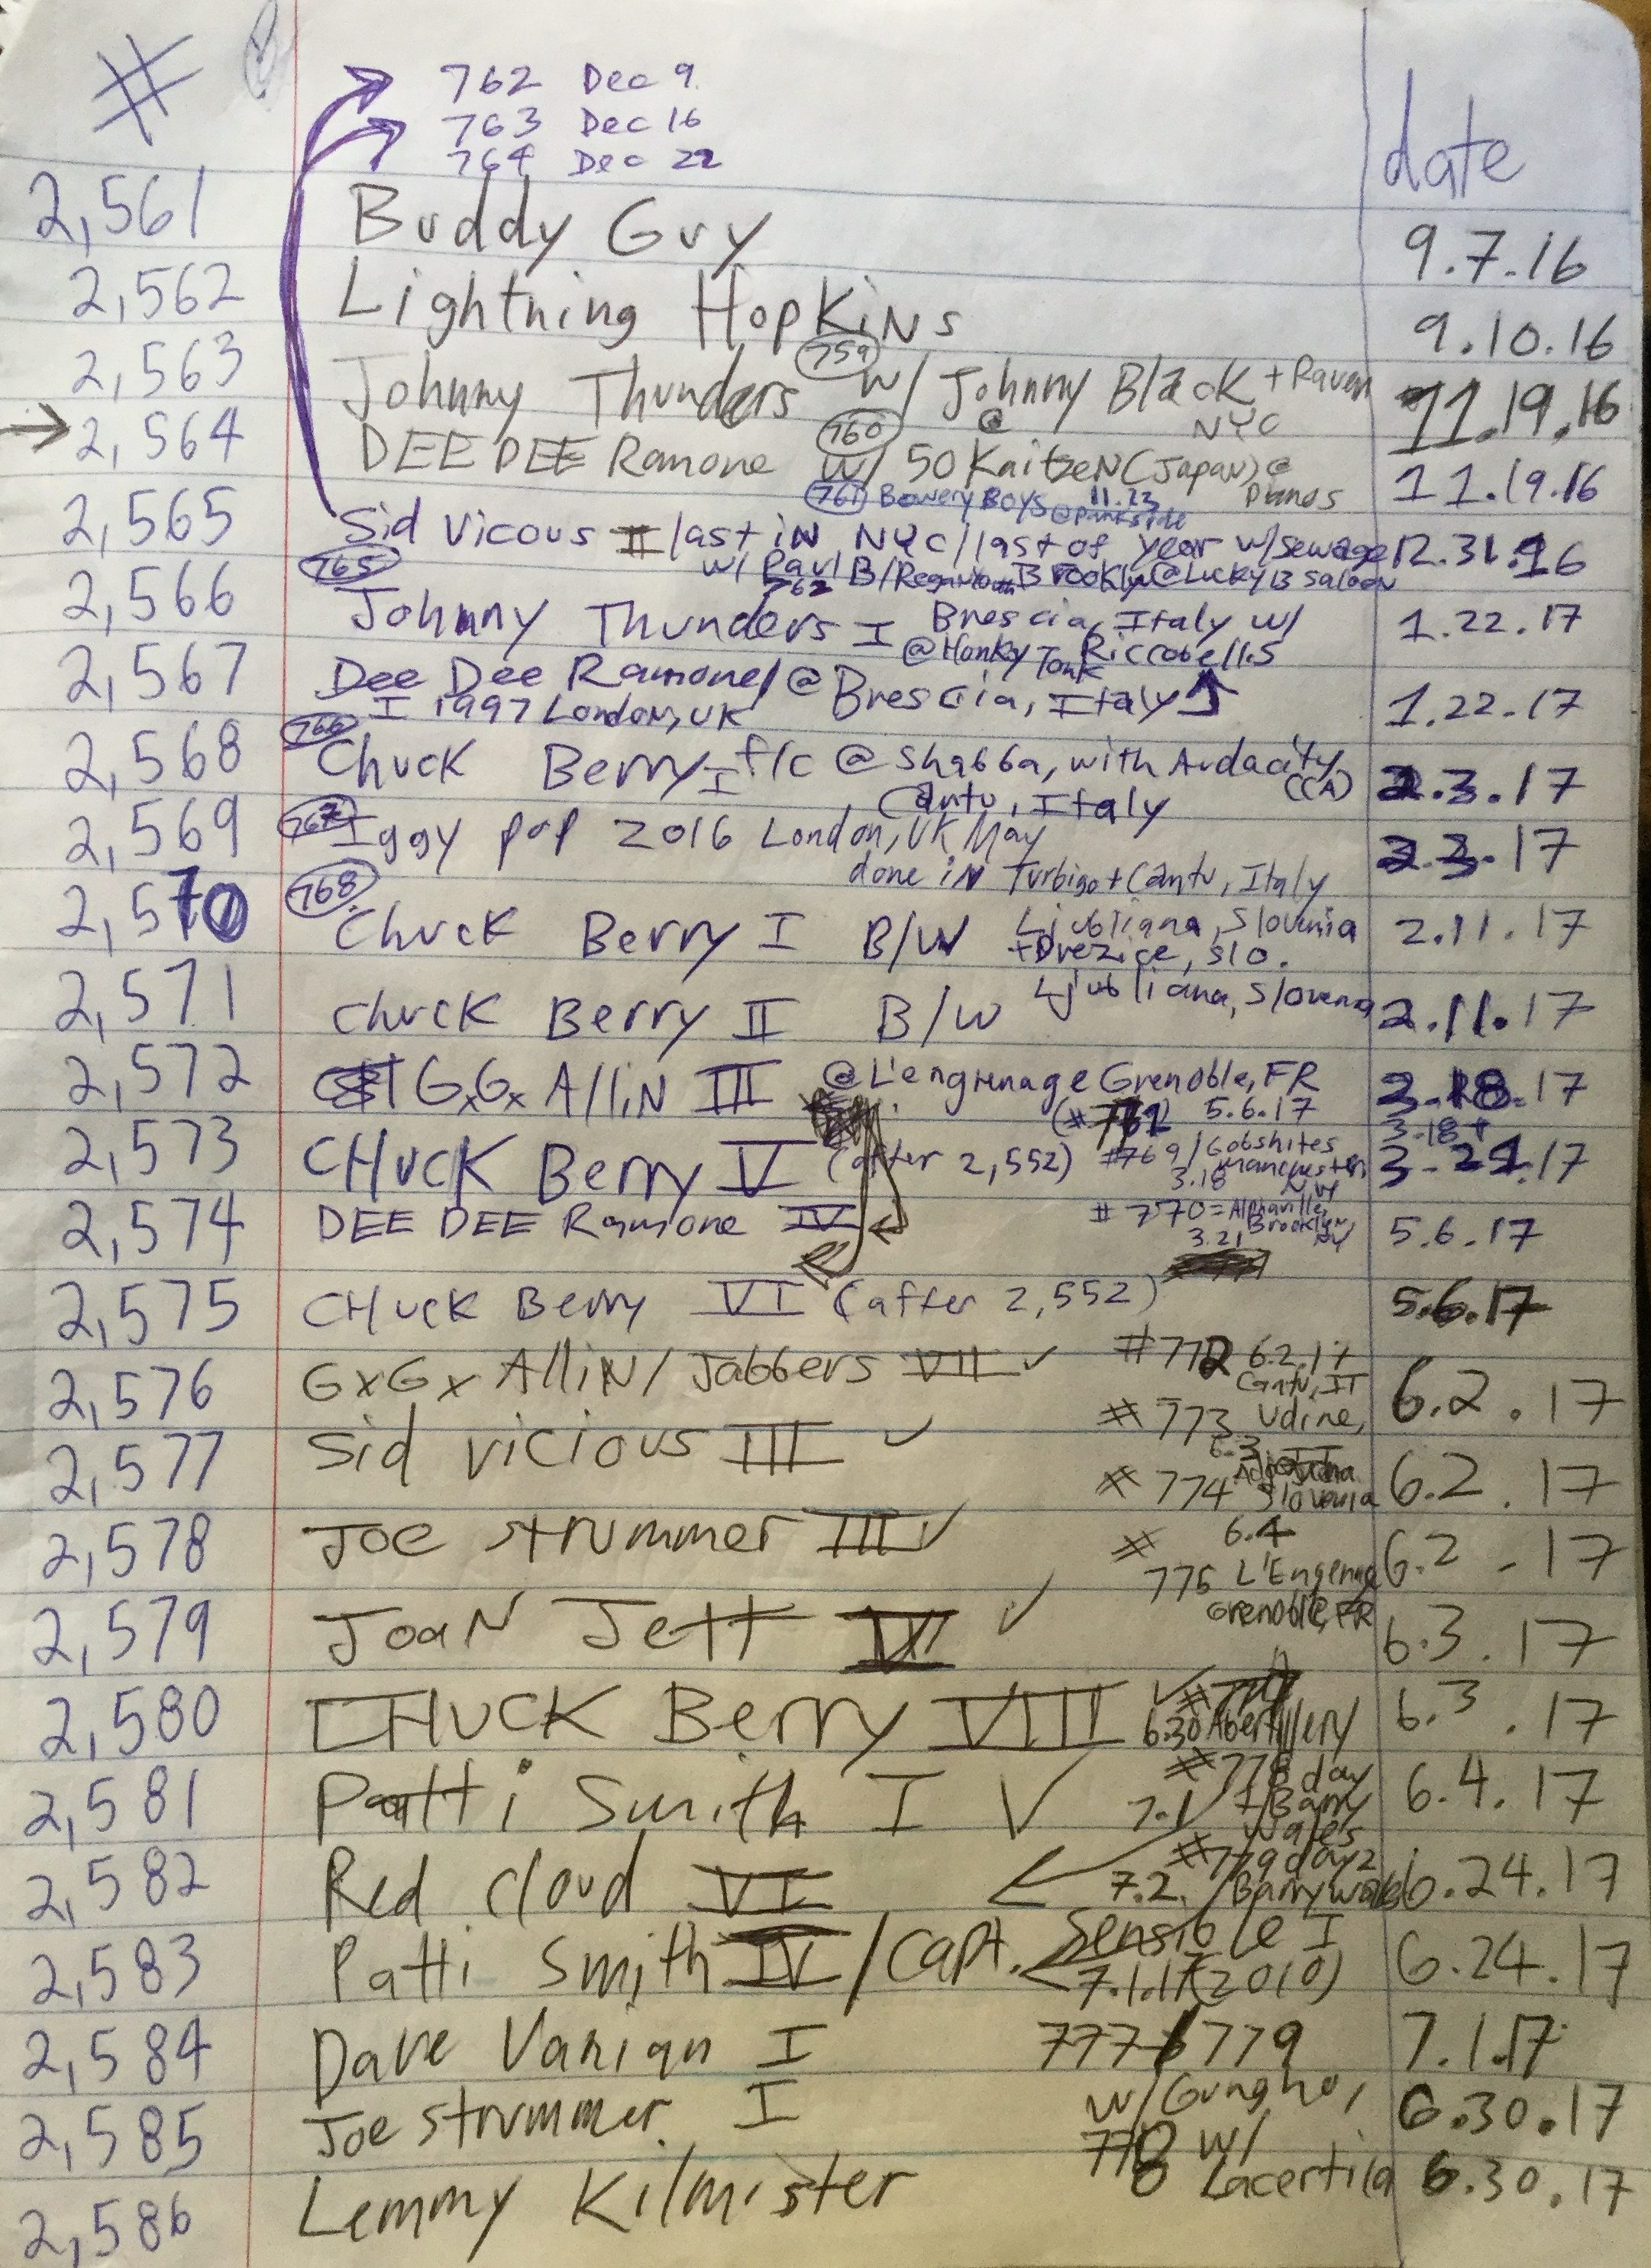 #
762 Dec 9
763 Dec 16
764 Dec 22
date
2,561 Buddy Guy 9.7.16
2,562 Lightning Hopkins 9.10.16
2,563 Johnny Thunders (759) w/ Johnny Black + Raven 11.19.16
@ NYC
→ 2,564 DEE DEE Ramone (760) w/ 50 KaitzeN (JapaN) @ 11.19.16
Pianos
(761) Bowery Boys @ parkside 11.23
2,565 Sid Vicous II last iN NYC/last of year w/sewage 12.31.16
(765) w/ Paul B/ Brooklyn @ Lucky 13 Saloon
762
2,566 Johnny Thunders I Brescia, Italy w/ 1.22.17
@Honky Tonk Riccobellis
2,567 Dee Dee Ramone/@ Brescia, Italy 1.22.17
I 1997 London, UK
2,568 (766) Chuck Berry I f/c @ Shabba, with Audacity (CA) 2.3.17
Cantu, Italy
2,569 (767) Iggy pop 2016 London, UK May 2.3.17
done iN Turbigo + Cantu, Italy
2,570 (768) Chuck Berry I B/W Ljubliana, Slovenia 2.11.17
+ Brezice, Slo.
2,571 Chuck Berry II B/W Ljubliana, Slovena 2.11.17
2,572 GxGx AlliN III @L'engrenage Grenoble, FR 3.18.17
(#771) 5.6.17
3.18 +
2,573 CHuCK Berry V (after 2,552) #769/Gobshites 3-21.17
3.18 Manchester, NH
2,574 DEE DEE Ramone IV #770=Alphaville, 5.6.17
Brooklyn, NY
3.21
2,575 CHuCK Berry VI (after 2,552) 5.6.17
2,576 GxGx AlliN/Jabbers VII ✓ #772 6.2.17 6.2.17
Cantu, IT
2,577 Sid vicious III ✓ #773 Udine, 6.2.17
6.3 IT
#774 Slovenia
2,578 Joe Strummer III ✓ 6.4 6.2.17
# 775 L'Engrenage
Grenoble, FR
2,579 JoaN Jett VI ✓ 6.3.17
2,580 CHuCK Berry VIII ✓ 6.3.17
6.30 Abertillery
2,581 Patti Smith I V #778 day 1 6.4.17
7.1 Barry Wales
2,582 Red Cloud VI #779 day 2 6.24.17
7.2. /Barry Wales
2,583 Patti Smith IV /Capt. Sensible I 6.24.17
7.1.17 (2010)
2,584 Dave Vanian I 777/779 7.1.17
2,585 Joe Strummer I w/Gungho, 6.30.17
778 w/
2,586 Lemmy Kilmister Lacertilia 6.30.17